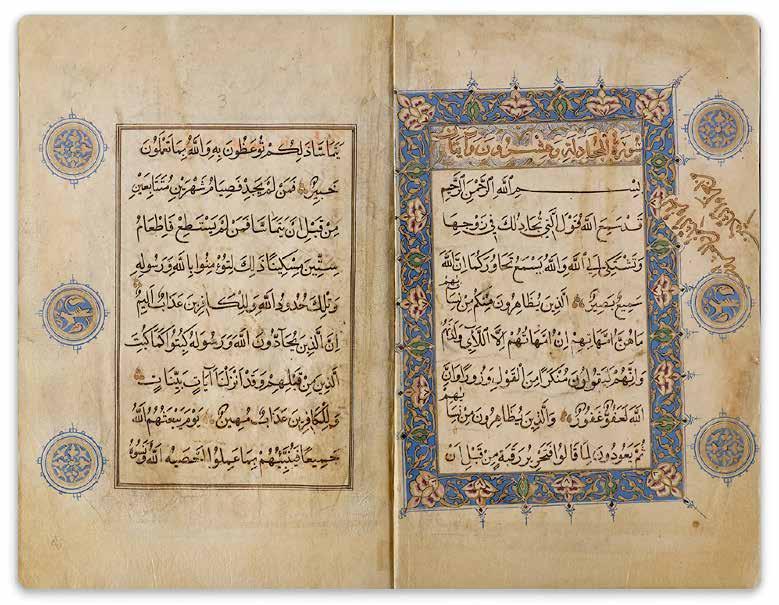 سورة المجادلة وهي عشرون وآيتان
بسم الله الرحمن الرحيم
قد سمع الله قول التي تجادلك في زوجها
وتشتكي الى الله والله يسمع تحاوركما ان الله
سميع بصير الذين يظاهرون منكم من نسائهم
ما هن امهاتهم ان امهاتهم الا اللائي ولدنهم
وانهم ليقولون منكرا من القول وزورا وان
الله لعفو غفور والذين يظاهرون من نسائهم
ثم يعودون لما قالوا فتحرير رقبة من قبل ان
يتماسا ذلكم توعظون به والله بما تعملون
خبير فمن لم يجد فصيام شهرين متتابعين
من قبل ان يتماسا فمن لم يستطع فاطعام
ستين مسكينا ذلك لتؤمنوا بالله ورسوله
وتلك حدود الله وللكافرين عذاب اليم
ان الذين يحادون الله ورسوله كبتوا كما كبت
الذين من قبلهم وقد انزلنا آيات بينات
وللكافرين عذاب مهين يوم يبعثهم الله
جميعا فينبئهم بما عملوا احصيه الله ونسوه